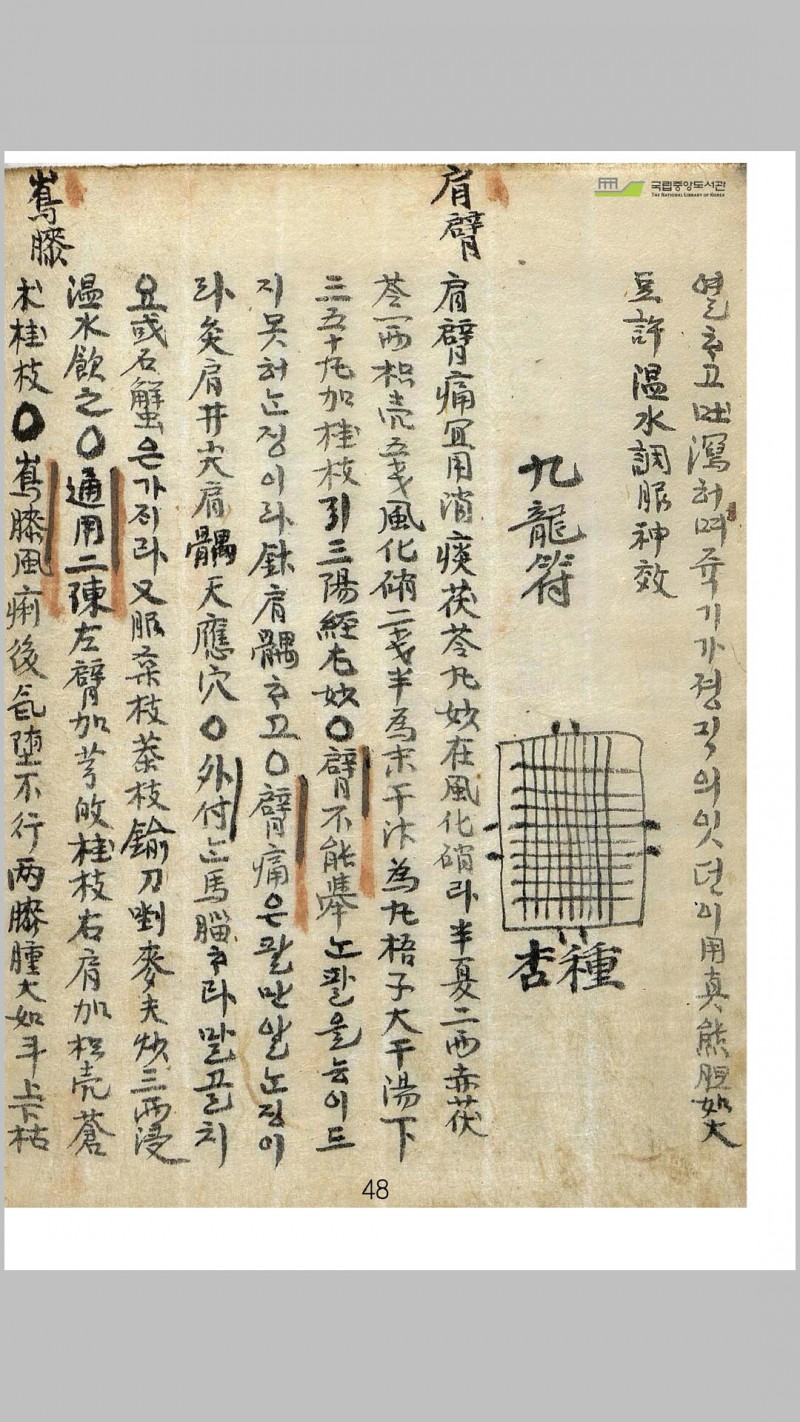 국립중앙도서관
THE NATIONAL LIBRARY OF KOREA
열ᄒᆞ고 吐瀉허며 쥭기가 경직의 잇던이 用真熊胆如大
豆許温水調服神效
九龍符
杏種
肩臂
肩臂痛宜用消痰茯苓丸妙在風化硝라半夏二両赤茯
苓一両枳壳五戔風化硝二戔半為末干汁為丸梧子大干湯下
三五十丸加桂枝引三陽經尤妙〇臂不能擧노팔을능이드
지못허ᄂᆞᆫ징이라針肩髃ᄒᆞ고〇臂痛은팔만알ᄂᆞᆫ징이
라灸肩井尖肩髃天應穴〇外付ᄂᆞᆫ馬腦ᄒᆞ라말골치
요或石蟹은가지라又服桑枝茶枝鍮刀剉麥夫炒三両浸
温水飲之〇通用二陳左臂加芎 桂枝右肩加枳壳蒼
朮桂枝〇鶴膝風痢後氣堕不行両膝腫大如斗上下枯
鶴膝
48